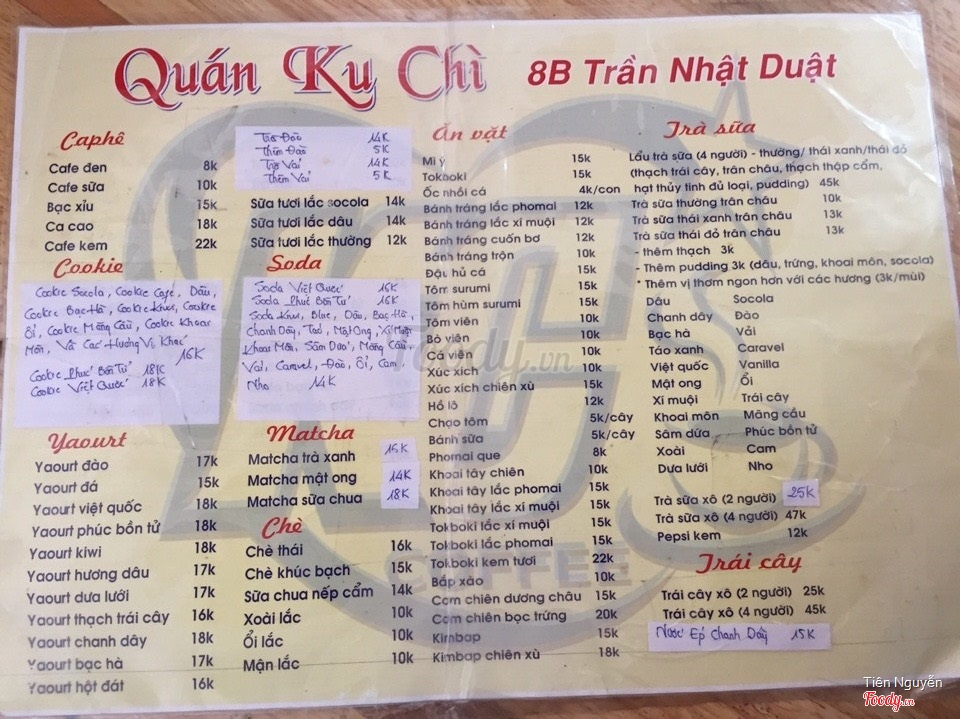 Quán Ku Chì
8B Trần Nhật Duật
Caphê
Cafe đen 8k
Cafe sữa 10k
Bạc xỉu 15k
Ca cao 18k
Cafe kem 22k
Trà Đào 14K
Thêm Đào 5K
Trà Vải 14K
Thêm Vải 5K
Sữa tươi lắc socola 14k
Sữa tươi lắc dâu 14k
Sữa tươi lắc thường 12k
Cookie
Cookie Socola, Cookie Café, Dâu,
Cookie Bạc Hà, Cookie Kiwi, Cookie
Ổi, Cookie Mãng Cầu, Cookie Khoai
Môn, Và Các Hương Vị Khác
16K
Cookie Phúc Bồn Tử 18K
Cookie Việt Quốc 18K
Soda
Soda Việt Quốc 16K
Soda Phúc Bồn Tử 16K
Soda Kiwi, Blue, Dâu, Bạc Hà,
Chanh Dây, Táo, Mật Ong, Xí Muội
Khoai Môn, Sầm Dứa, Mãng Cầu,
Vải, Caravel, Đào, Ổi, Cam,
Nho 14K
Yaourt
Yaourt đào 17k
Yaourt đá 15k
Yaourt việt quốc 18k
Yaourt phúc bồn tử 18k
Yaourt kiwi 18k
Yaourt hương dâu 17k
Yaourt dưa lưới 17k
Yaourt thạch trái cây 16k
Yaourt chanh dây 18k
Yaourt bạc hà 17k
Yaourt hột đát 16k
Matcha
Matcha trà xanh 15K
Matcha mật ong 14K
Matcha sữa chua 18K
Chè
Chè thái 16k
Chè khúc bạch 15k
Sữa chua nếp cẩm 14k
Xoài lắc 10k
Ổi lắc 10k
Mận lắc 10k
Ăn vặt
Mì ý 15k
Tokboki 15k
Ốc nhồi cá 4k/con
Bánh tráng lắc phomai 12k
Bánh tráng lắc xí muội 12k
Bánh tráng cuốn bơ 12k
Bánh tráng trộn 10k
Đậu hủ cá 15k
Tôm surumi 15k
Tôm hùm surumi 15k
Tôm viên 10k
Bò viên 10k
Cá viên 10k
Xúc xích 10k
Xúc xích chiên xù 15k
Hồ lô 12k
Chạo tôm 5k/cây
Bánh sữa 5k/cây
Phomai que 8k
Khoai tây chiên 10k
Khoai tây lắc phomai 15k
Khoai tây lắc xí muội 15k
Tokboki lắc xí muội 15k
Tokboki lắc phomai 15k
Tokboki kem tươi 22k
Bắp xào 10k
Cơm chiên dương châu 15k
Cơm chiên bọc trứng 20k
Kimbap 15k
Kimbap chiên xù 18k
Trà sữa
Lẩu trà sữa (4 người) - thường/ thái xanh/thái đỏ
(thạch trái cây, trân châu, thạch thập cẩm,
hạt thủy tinh đủ loại, pudding) 45k
Trà sữa thường trân châu 10k
Trà sữa thái xanh trân châu 13k
Trà sữa thái đỏ trân châu 13k
- thêm thạch 3k
- Thêm pudding 3k (dâu, trứng, khoai môn, socola)
* Thêm vị thơm ngon hơn với các hương (3k/mùi)
Dâu Socola
Chanh dây Đào
Bạc hà Vải
Táo xanh Caravel
Việt quốc Vanilla
Mật ong Ổi
Xí muội Trái cây
Khoai môn Mãng cầu
Sâm dứa Phúc bồn tử
Xoài Cam
Dưa lưới Nho
Trà sữa xô (2 người) 25K
Trà sữa xô (4 người) 47k
Pepsi kem 12k
Trái cây
Trái cây xô (2 người) 25k
Trái cây xô (4 người) 45k
Nước Ép Chanh Dây 15K
COFFEE
Foody.vn
Tiên Nguyễn
Foody.vn